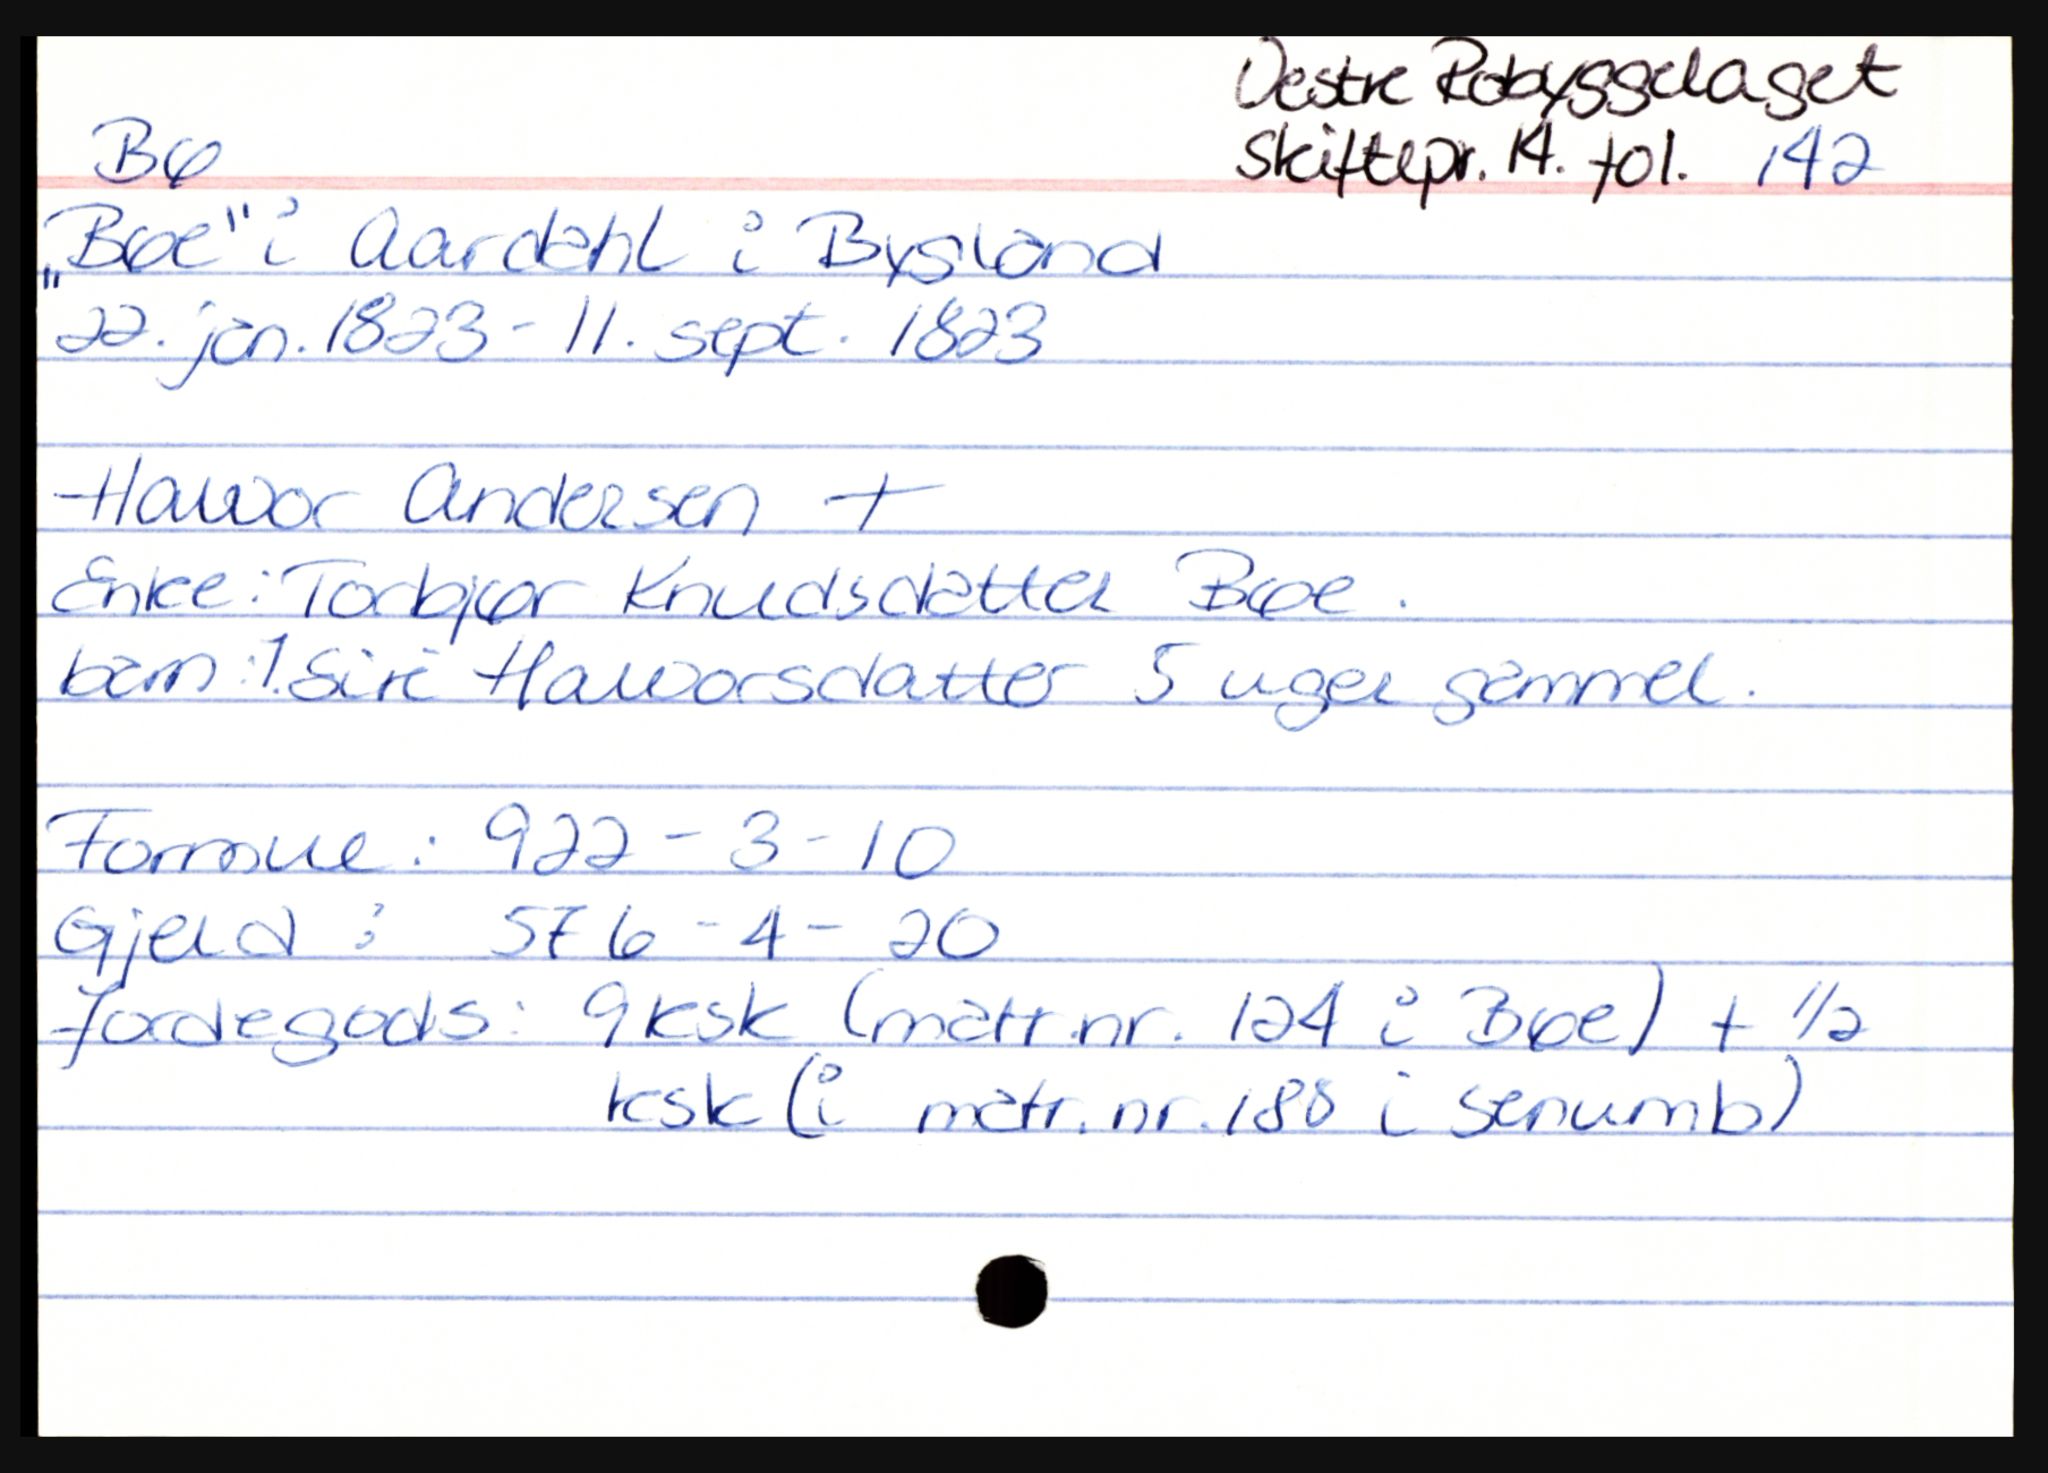 Vestre Robyggelaget
skiftepr. 14. fol. 142
Bø
"Bøe" i Aardahl i Bysland
22. jan. 1823 - 11. sept. 1823
Hawor Andersen +
Enke: Torbjør Knudsdatter Bøe.
barn: 1. Siri Haworsdatter 5 uger gammel.
Formue: 922 - 3 - 10
Gjeld: 576 - 4 - 20
Jordegods: 9 ksk (matr.nr. 124 i Bøe) + 1/2
ksk (i matr. nr. 188 i Senumb)